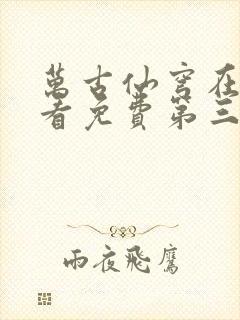 萬古仙穹在
看免費第三
雨夜飛鷹